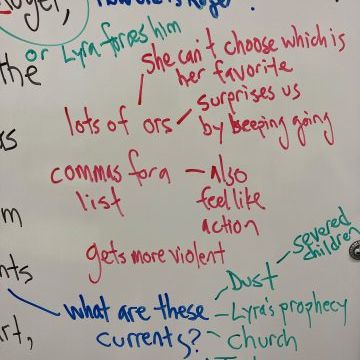 or Lyra forces him
the
She can't choose which is
her favorite
lots of ors
surprises us
by keeping going
commas for a
list
also
feel like
action
gets more violent
what are these
currents?
Dust
Lyra's prophecy
church
severed
children